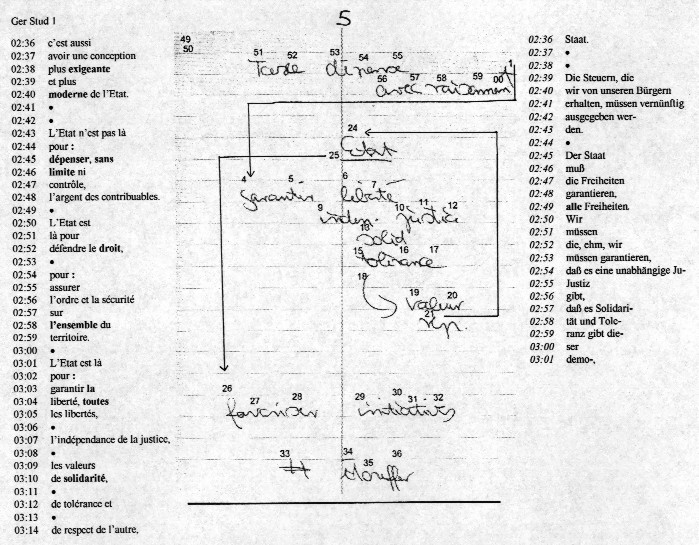 Ger Stud 1
5
02:36 c'est aussi
02:37 avoir une conception
02:38 plus exigeante
02:39 et plus
02:40 moderne de l'Etat.
02:41 •
02:42 •
02:43 L'Etat n'est pas là
02:44 pour :
02:45 dépenser, sans
02:46 limite ni
02:47 contrôle,
02:48 l'argent des contribuables.
02:49 •
02:50 L'Etat est
02:51 là pour
02:52 défendre le droit,
02:53 •
02:54 pour :
02:55 assurer
02:56 l'ordre et la sécurité
02:57 sur
02:58 l'ensemble du
02:59 territoire.
03:00 •
03:01 L'Etat est là
03:02 pour :
03:03 garantir la
03:04 liberté, toutes
03:05 les libertés,
03:06 •
03:07 l'indépendance de la justice,
03:08 •
03:09 les valeurs
03:10 de solidarité,
03:11 •
03:12 de tolérance et
03:13 •
03:14 de respect de l'autre,
49
50
51 52 53 54 55
56 57 58 59 00 1
avec
24
Etat
25
4 5 6 7
garantir liberté
9 10 11 12
indep. justice
13
solid
15 16 17
tolerance
18
19 20
valeur
21
rép.
26 27 28 29 30 31 32
favoriser
33 34 35 36
étouffer
02:36 Staat.
02:37 •
02:38 •
02:39 Die Steuern, die
02:40 wir von unseren Bürgern
02:41 erhalten, müssen vernünftig
02:42 ausgegeben wer-
02:43 den.
02:44 •
02:45 Der Staat
02:46 muß
02:47 die Freiheiten
02:48 garantieren,
02:49 alle Freiheiten.
02:50 Wir
02:51 müssen
02:52 die, ehm, wir
02:53 müssen garantieren,
02:54 daß es eine unabhängige Ju-
02:55 Justiz
02:56 gibt,
02:57 daß es Solidari-
02:58 tät und Tole-
02:59 ranz gibt die-
03:00 ser
03:01 demo-,